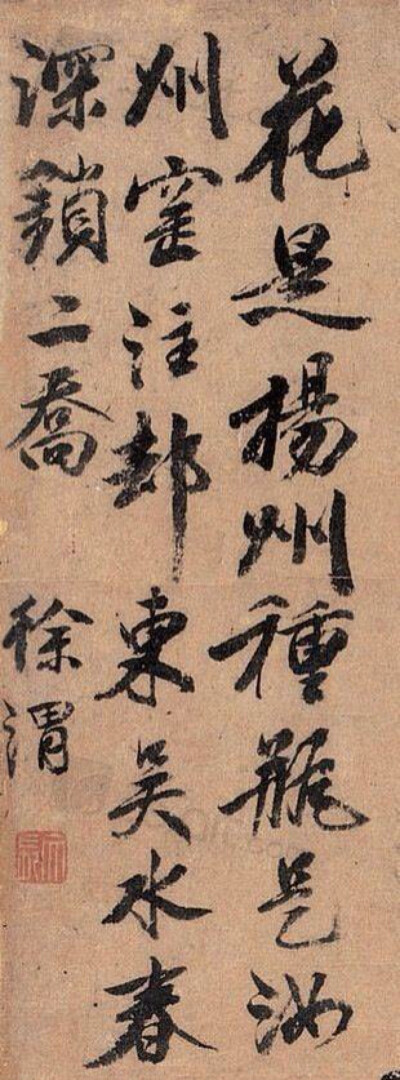 花是揚州種瓶是汝
州窑注却東吴水春
深鎖二喬 徐渭